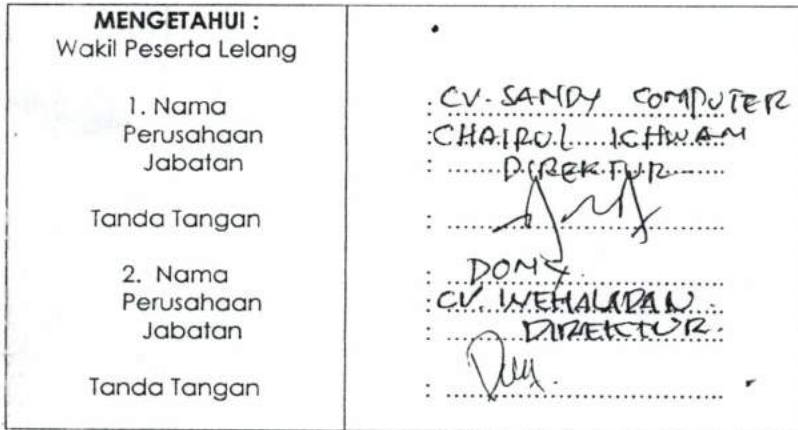 MENGETAHUI :
Wakil Peserta Lelang
1. Nama : CV. SANDY COMPUTER
Perusahaan : CHAIRUL ICHWAN
Jabatan : DIREKTUR
Tanda Tangan :
2. Nama : DONY
Perusahaan : CV.
Jabatan : DIREKTUR.
Tanda Tangan :